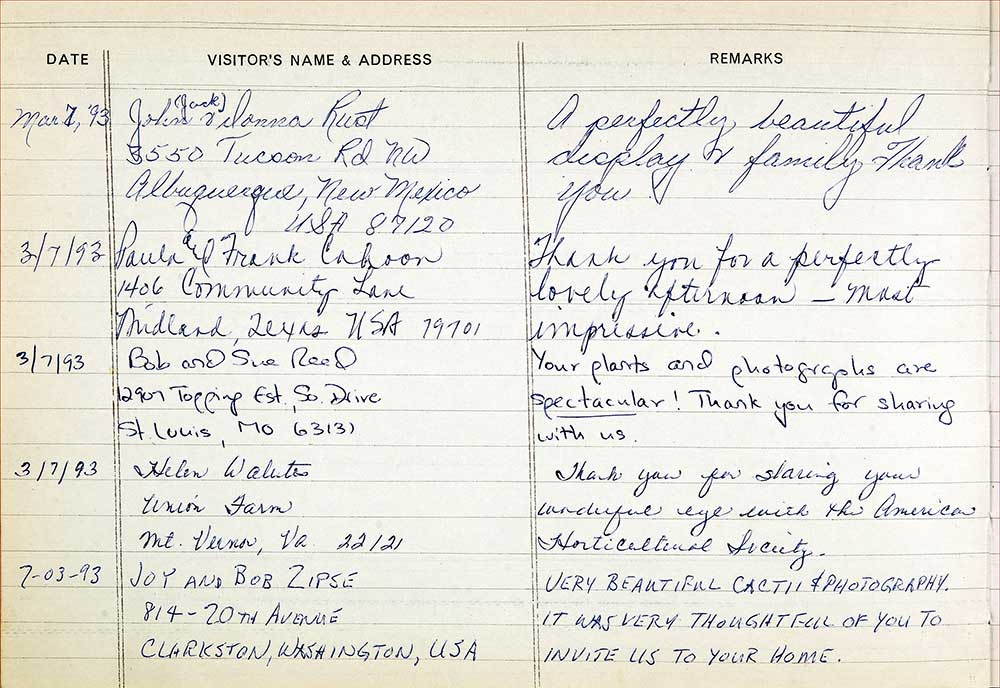 DATE
VISITOR'S NAME & ADDRESS
REMARKS
Mar 7, '93
John (Jack) & Donna Rust
3550 Tucson Rd NW
Albuquerque, New Mexico
USA 87120
A perfectly beautiful
display & family Thank
you
3/7/93
Paula & Frank Cahoon
1406 Community Lane
Midland, Texas USA 79701
Thank you for a perfectly
lovely afternoon – most
impressive.
3/7/93
Bob and Sue Reed
12907 Topping Est. So. Drive
St. Louis, MO 63131
Your plants and photographs are
spectacular! Thank you for sharing
with us.
3/7/93
Helen Walutes
Union Farm
Mt. Vernon, Va. 22121
Thank you for sharing your
wonderful eye with the American
Horticultural Society.
7-03-93
JOY AND BOB ZIPSE
814-20TH AVENUE
CLARKSTON, WASHINGTON, USA
VERY BEAUTIFUL CACTII & PHOTOGRAPHY.
IT WAS VERY THOUGHTFUL OF YOU TO
INVITE US TO YOUR HOME.